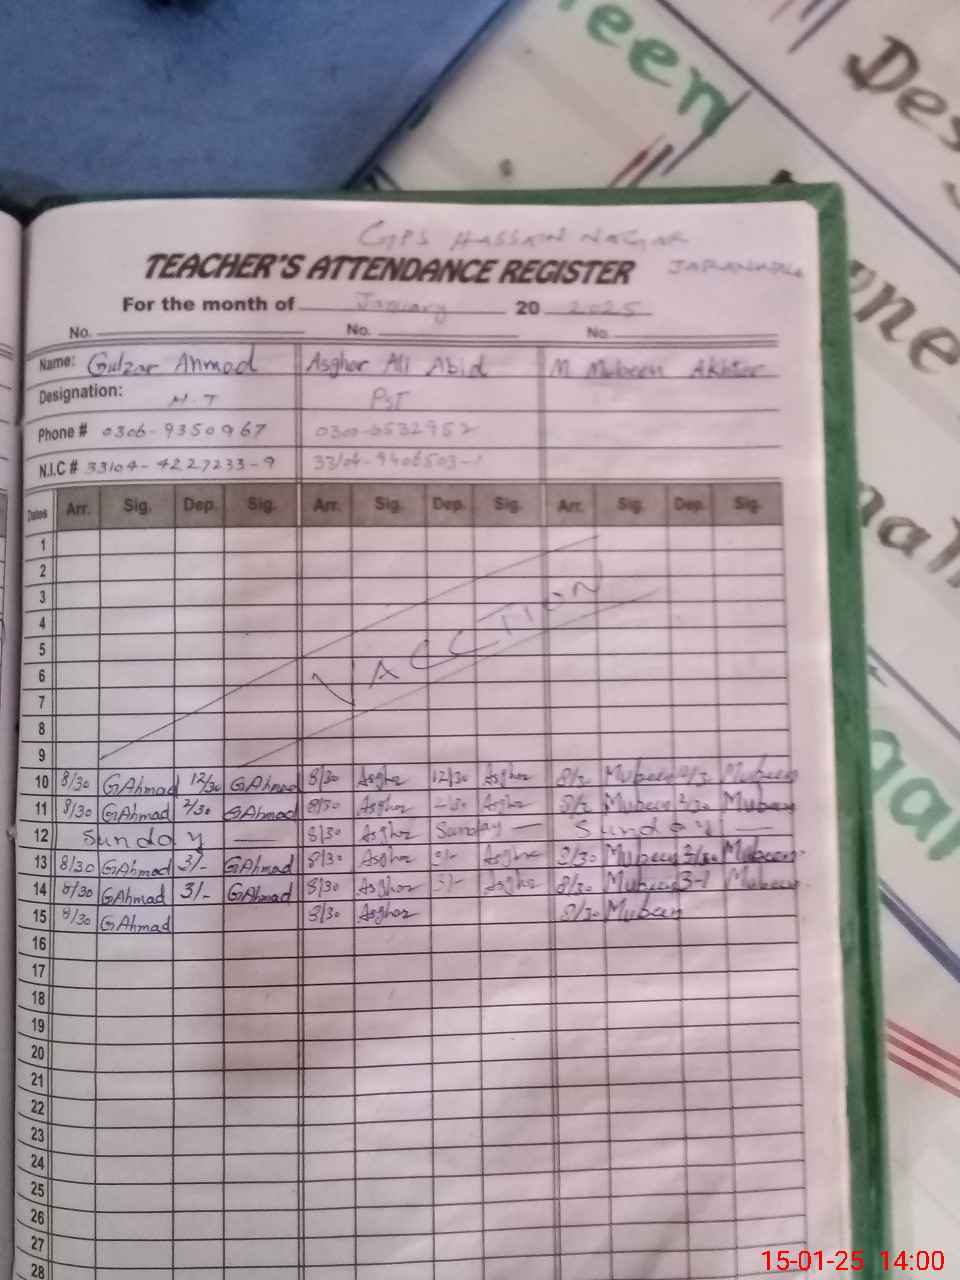 een
Des
GPS HASSAIN NAGAR
TEACHER'S ATTENDANCE REGISTER JARANWALA
For the month of January 20 2025
No. No. No.
Name: Gulzar Ahmad Asghar Ali Abid M Mubeen Akhtar
Designation: H.T PST
Phone # 0306-9350967
N.I.C # 33104-4227233-9
Dates Arr. Sig. Dep. Sig. Arr. Sig. Dep. Sig. Arr. Sig. Dep. Sig.
1
2
3
4
5
6
7
8
9
VACCTION
10 8/30 GAhmad 12/30 GAhmad 8/30 Asghar 12/30 Asghar Mubeen Mubeen
11 8/30 GAhmad 2/30 GAhmad 8/30 Asghar 2/30 Asghar Mubeen 2/30 Mubeen
12 Sunday — 8/30 Asghar Sunday — Sunday —
13 8/30 GAhmad 3/- GAhmad 8/30 Asghar 3/- Asghar 8/30 Mubeen Mubeen
14 8/30 GAhmad 3/- GAhmad 8/30 Asghar 3/- Asghar 8/30 Mubeen Mubeen
15 8/30 GAhmad 8/30 Asghar 8/30 Mubeen
16
17
18
19
20
21
22
23
24
25
26
27
28
15-01-25 14:00